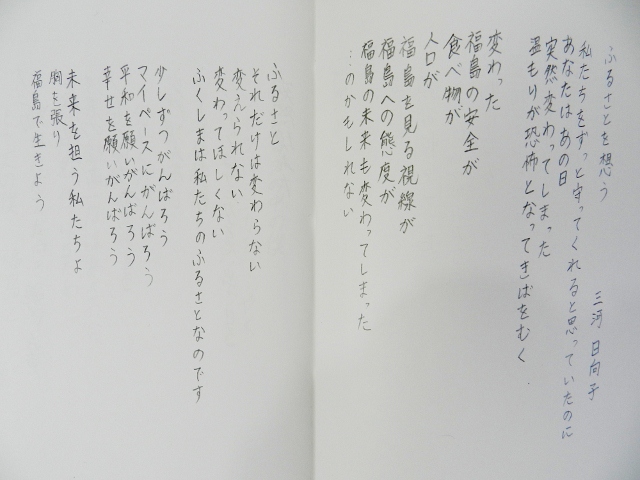 ふるさとを想う
三河 日向子
私たちをずっと守ってくれると思っていたのに
あなたはあの日
突然変わってしまった
温もりが恐怖となってきばをむく
変わった
福島の安全が
食べ物が
人口が
福島を見る視線が
福島への態度が
福島の未来も変わってしまった
…のかもしれない
ふるさと
それだけは変わらない
変えられない
変わってほしくない
ふくしまは私たちのふるさとなのです
少しずつがんばろう
マイペースにがんばろう
平和を願いがんばろう
幸せを願いがんばろう
未来を担う私たちよ
胸を張り
福島で生きよう